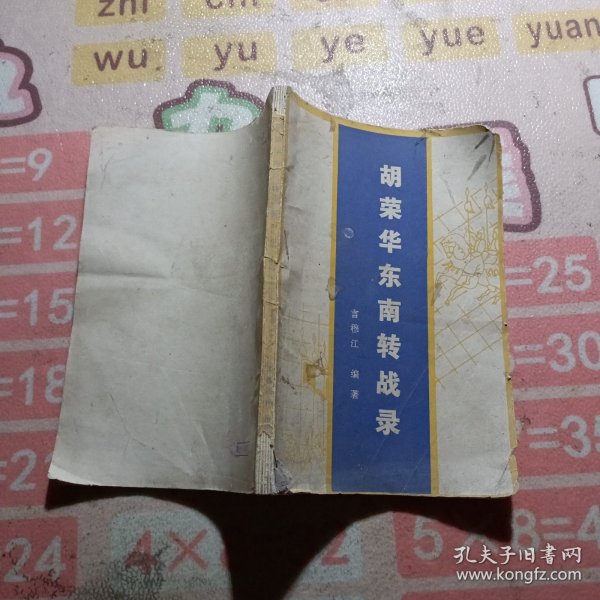 zhi chi
wu yu ye yue yuan
=9
=12
=15
=18
=21
24
4×8
=25
=30
=35
5×8=4
胡荣华东南转战录
言穆江 编著
孔夫子旧书网
www.kongfz.com